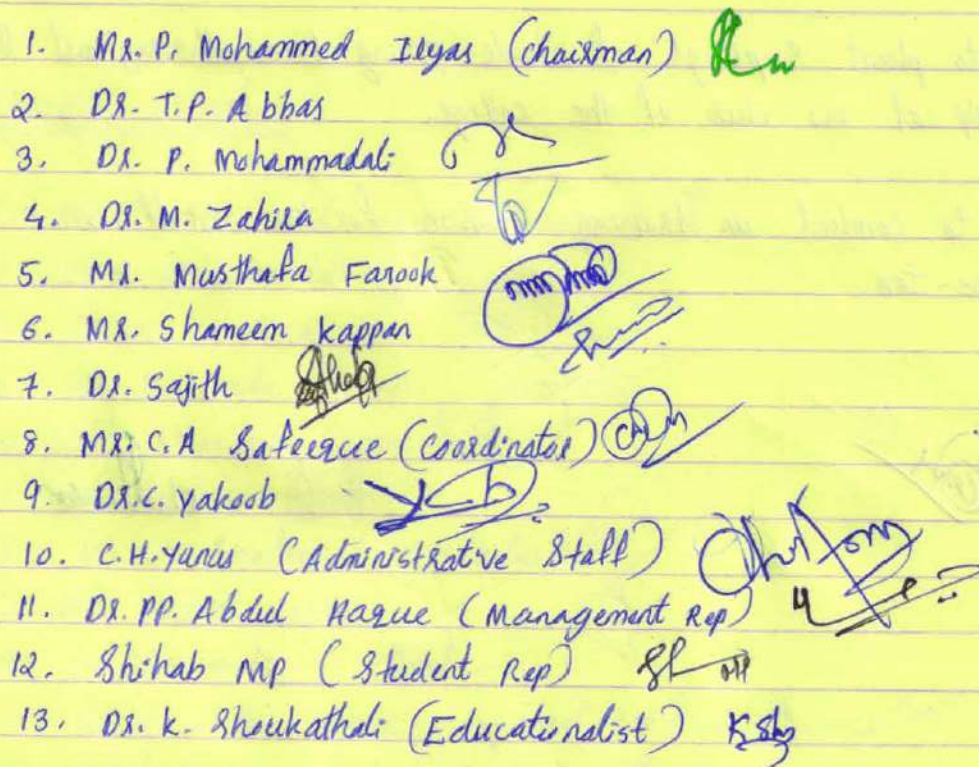 1. Mr. P. Mohammed Ilyas (chairman)
2. Dr. T.P. Abbas
3. Dr. P. Mohammadali
4. Dr. M. Zahira
5. Mr. Musthafa Farook
6. Mr. Shameem kappan
7. Dr. Sajith
8. Mr. C.A Safeeque (Coordinator)
9. Dr. C. Yakoob
10. C.H. Yunus (Administrative Staff)
11. Dr. PP. Abdul Haque (Management Rep)
12. Shihab MP (Student Rep)
13. Dr. K. Shoukathali (Educationalist)